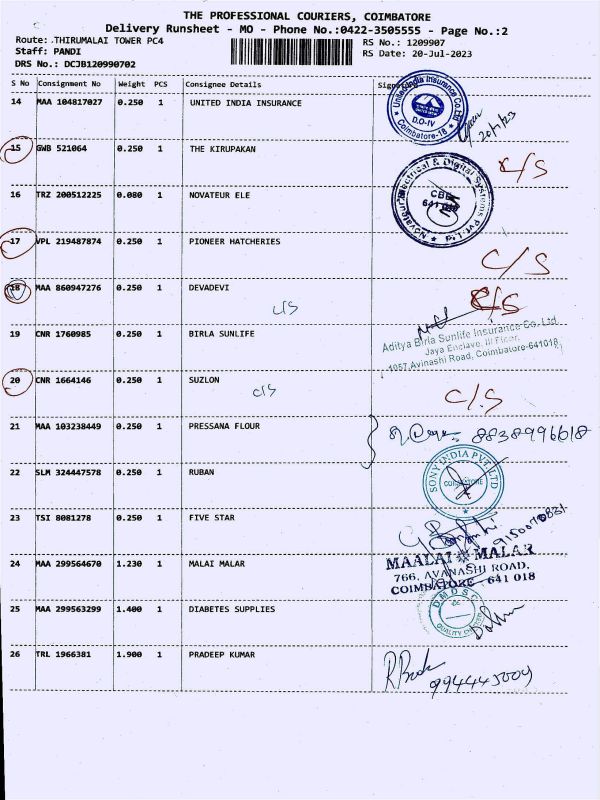 THE PROFESSIONAL COURIERS, COIMBATORE
Delivery Runsheet - MO - Phone No.:0422-3505555 - Page No.:2
Route: .THIRUMALAI TOWER PC4
RS No.: 1209907
Staff: PANDI
RS Date: 20-Jul-2023
DRS No.: DCJB120990702
S No Consignment No Weight PCS Consignee Details
14 MAA 104817027 0.250 1 UNITED INDIA INSURANCE
United India Insurance Co.Ltd
D.O-IV
Coimbatore-18
20/7/23
15 GWB 521064 0.250 1 THE KIRUPAKAN
C/S
16 TRZ 200512225 0.080 1 NOVATEUR ELE
Novateur Electrical & Digital Systems Pvt.Ltd
CBE
17 VPL 219487874 0.250 1 PIONEER HATCHERIES
C/S
18 MAA 860947276 0.250 1 DEVADEVI
C/S
C/S
19 CNR 1760985 0.250 1 BIRLA SUNLIFE
Aditya Birla Sunlife Insurance Co. Ltd
Jaya Enclave, III Floor,
1057,Avinashi Road, Coimbatore-641018
20 CNR 1664146 0.250 1 SUZLON
C/S
C/S
21 MAA 103238449 0.250 1 PRESSANA FLOUR
8838996618
22 SLM 324447578 0.250 1 RUBAN
SONY INDIA PVT. LTD
COIMBATORE
23 TSI 8081278 0.250 1 FIVE STAR
24 MAA 299564670 1.230 1 MALAI MALAR
MAALAI MALAR
766, AVANASHI ROAD,
COIMBATORE - 641 018
25 MAA 299563299 1.400 1 DIABETES SUPPLIES
26 TRL 1966381 1.900 1 PRADEEP KUMAR